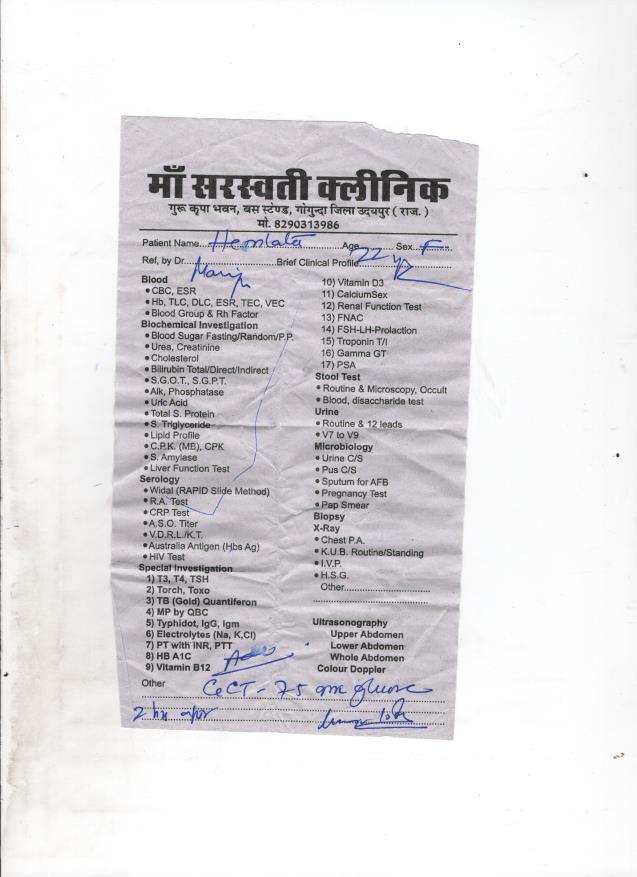 माँ सरस्वती क्लीनिक
गुरू कृपा भवन, बस स्टेण्ड, गोगुन्दा जिला उदयपुर ( राज. )
मो. 8290313986
Patient Name....Hemlata........Age..........Sex...F......
Ref, by Dr..........................Brief Clinical Profile 22 yr
Blood
• CBC, ESR
• Hb, TLC, DLC, ESR, TEC, VEC
• Blood Group & Rh Factor
Biochemical Investigation
• Blood Sugar Fasting/Random/P.P.
• Urea, Creatinine
• Cholesterol
• Bilirubin Total/Direct/Indirect
• S.G.O.T., S.G.P.T.
• Alk, Phosphatase
• Uric Acid
• Total S. Protein
• S. Triglyceride
• Lipid Profile
• C.P.K. (MB), CPK
• S. Amylase
• Liver Function Test
Serology
• Widal (RAPID Slide Method)
• R.A. Test
• CRP Test
• A.S.O. Titer
• V.D.R.L./K.T.
• Australia Antigen (Hbs Ag)
• HIV Test
Special Investigation
1) T3, T4, TSH
2) Torch, Toxo
3) TB (Gold) Quantiferon
4) MP by QBC
5) Typhidot, IgG, Igm
6) Electrolytes (Na, K,Cl)
7) PT with INR, PTT
8) HB A1C
9) Vitamin B12
10) Vitamin D3
11) CalciumSex
12) Renal Function Test
13) FNAC
14) FSH-LH-Prolaction
15) Troponin T/I
16) Gamma GT
17) PSA
Stool Test
• Routine & Microscopy, Occult
• Blood, disaccharide test
Urine
• Routine & 12 leads
• V7 to V9
Microbiology
• Urine C/S
• Pus C/S
• Sputum for AFB
• Pregnancy Test
• Pap Smear
Biopsy
X-Ray
• Chest P.A.
• K.U.B. Routine/Standing
• I.V.P.
• H.S.G.
Other.........................
Ultrasonography
Upper Abdomen
Lower Abdomen
Whole Abdomen
Colour Doppler
Other GCT - 75 gm glucose
2 hr